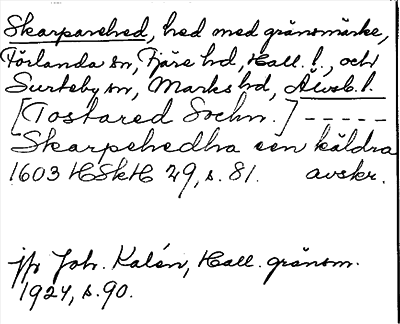 Skarparehed, hed med gränsmärke,
Förlanda sn, Fjäre hd, Hall. l., och
Surteby sn, Marks hd, Älvsb. l.
[Tostared Sochn.] - - - - -
Skarpehedha een käldra
1603 HSkH 29, s. 81. avskr.
jfr Joh. Kalén, Hall. gränsm.
1924, s. 90.